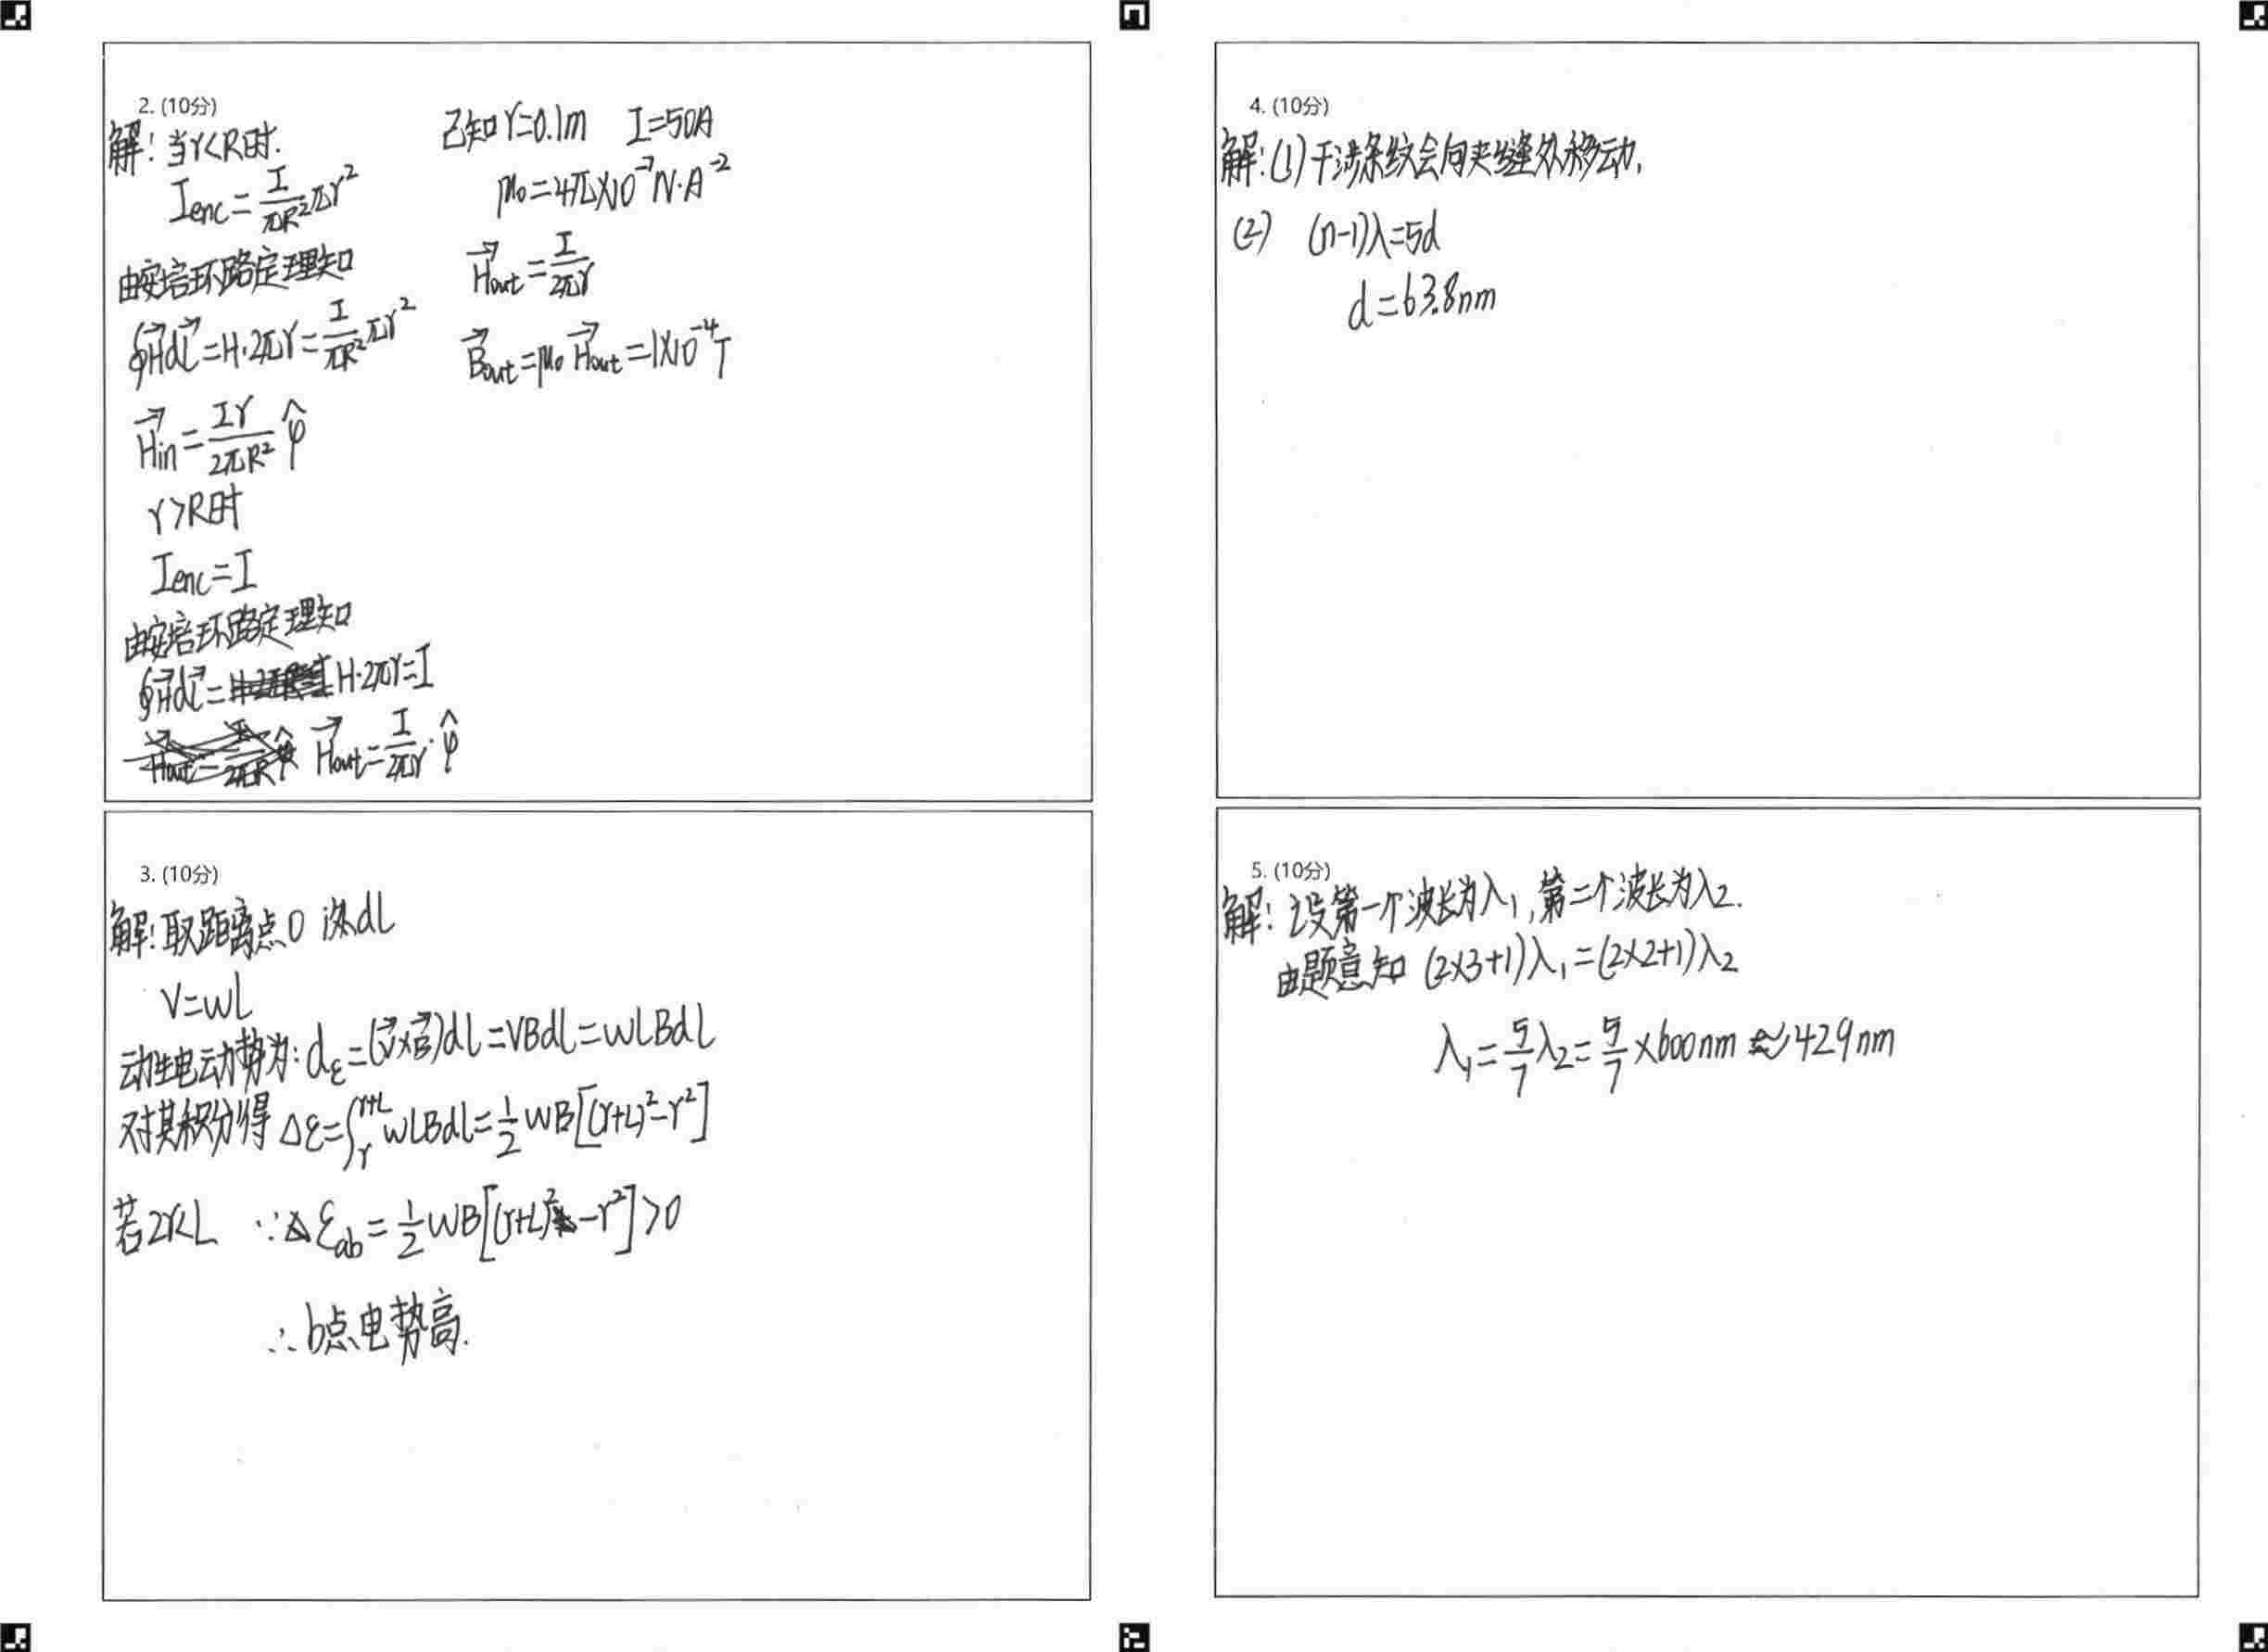 2. (10分)
解: 当r<R时.
Ienc = I/πR² πr²
由安培环路定理知
∮H⃗dL⃗ = H·2πr = I/πR² πr²
H⃗in = Ir/2πR² φ̂
r>R时
Ienc = I
由安培环路定理知
∮H⃗dL⃗ = H·2πr = I
H⃗out = I/2πr · φ̂
已知 r=0.1m I=50A
μ₀ = 4π×10⁻⁷ N·A⁻²
H⃗out = I/2πr
B⃗out = μ₀ H⃗out = 1×10⁻⁴T
3. (10分)
解: 取距离点O dL
V=wL
动生电动势为: dε = (V⃗×B⃗)dl = VBdl = wLBdL
对其积分得 Δε = ∫_r^{r+L} wLBdl = 1/2 wB[(r+L)²-r²]
若2r<L ∵ εab = 1/2 wB[(r+L)²-r²]>0
∴ b点电势高.
4. (10分)
解: (1) 干涉条纹会向夹缝处移动,
(2) (n-1)λ=5d
d=63.8nm
5. (10分)
解: 设第一个波长为λ₁, 第二个波长为λ₂.
由题意知 (2×3+1)λ₁=(2×2+1)λ₂
λ₁ = 5/7 λ₂ = 5/7 ×600nm ≈ 429nm